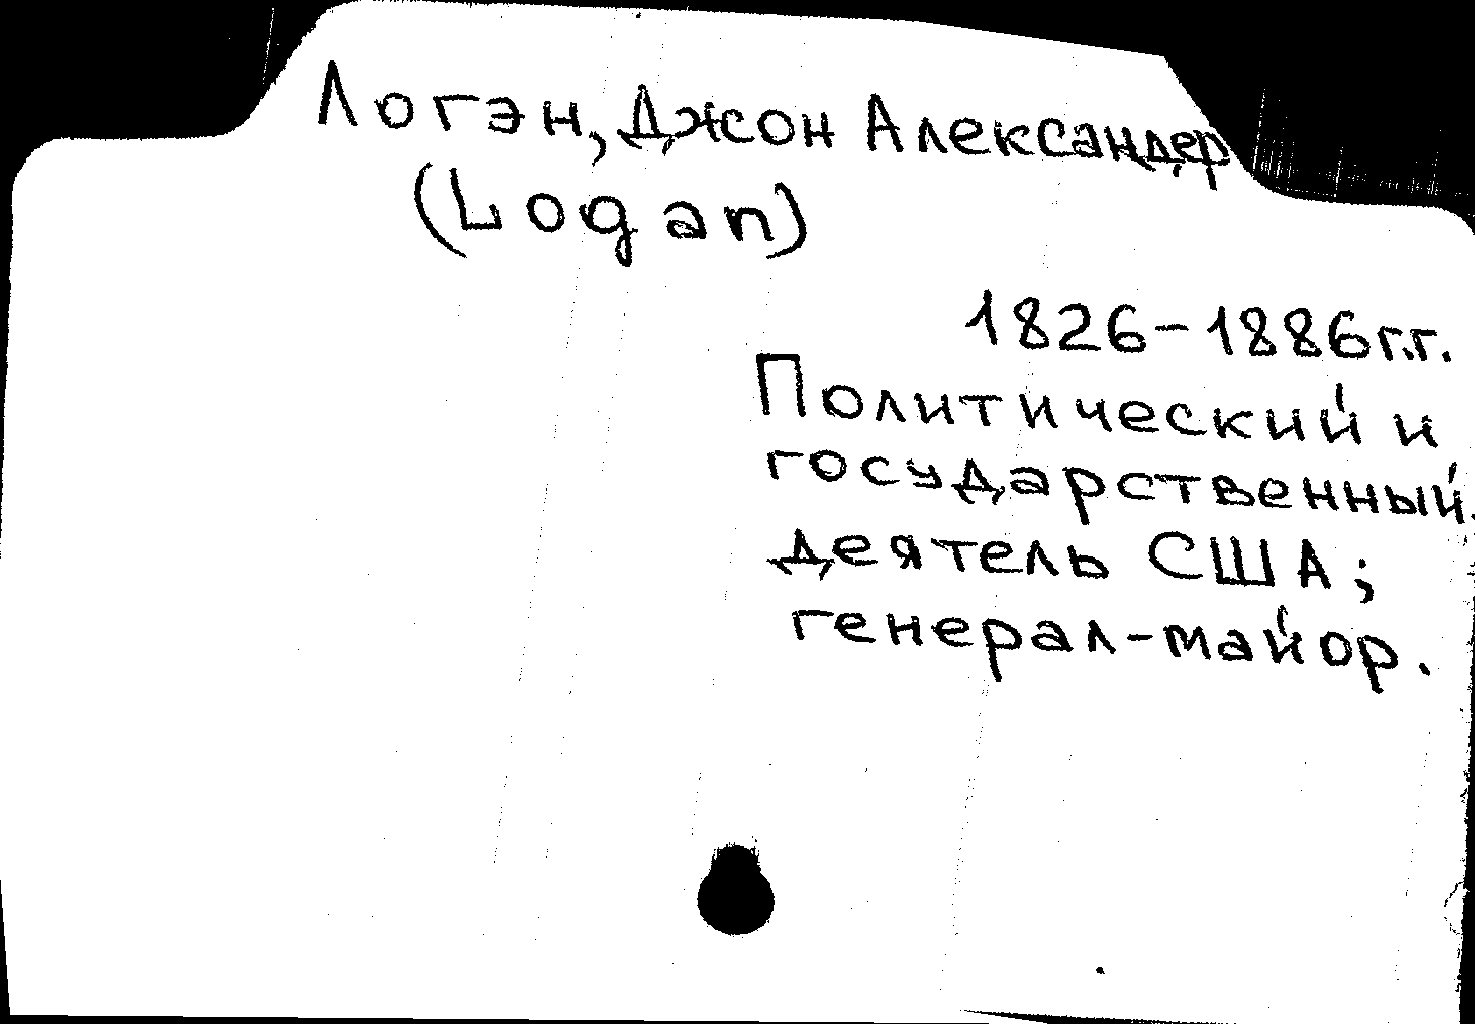 Логэн, Джон Александер
(Logan)
1826-1886г.г.
Политический и
государственный
деятель США;
генерал-майор.